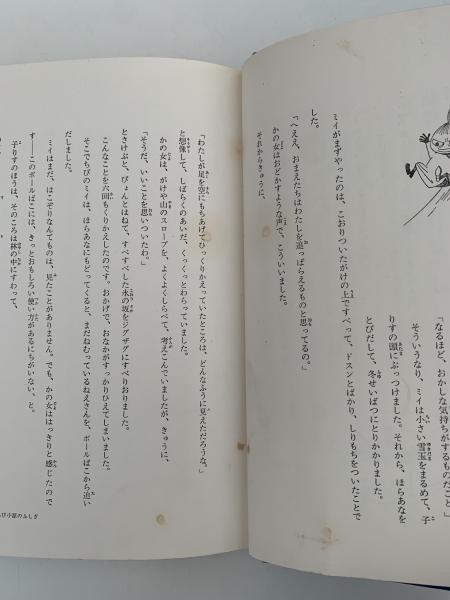 「なるほど、おかしな気持ちがするものだこと」
そういうなり、ミイは小さい雪玉をまるめて、子
りすの頭にぶっつけました。それから、ほらあなを
とびだして、冬せいばつにとりかかりました。
ミイがまずやったのは、こおりついたがけの上ですべって、ドスンとばかり、しりもちをついたことで
した。
「へええ、おまえたちはわたしを追っぱらえるものと思ってるの。」
かの女はおどかすような声で、こういいました。
それからきゅうに、
「わたしが足を空にもちあげてひっくりかえっていたところは、どんなふうに見えただろうな。」
と想像して、しばらくのあいだ、くっくっとわらっていました。
かの女は、がけや山のスロープを、よくよくしらべて、考えこんでいましたが、きゅうに、
「そうだ、いいことを思いついたわ。」
とさけぶと、ぴょんとはねて、すべすべした氷の坂をジグザグにすべりおりました。
こんなことを六回もくりかえしたのです。おかげで、おなかがすっかりひえてしまいました。
そこでちびのミイは、ほらあなにもどってくると、まだねむっているねえさんを、ボールばこから追い
だしました。
ミイはまだ、はこぞりなんてものは、見たことがありません。でも、かの女ははっきりと感じたので
す——このボールばこには、きっとおもしろい使い方があるにちがいない、と。
子りすのほうは、そのころは林の中にすわって、
小屋のふしぎ